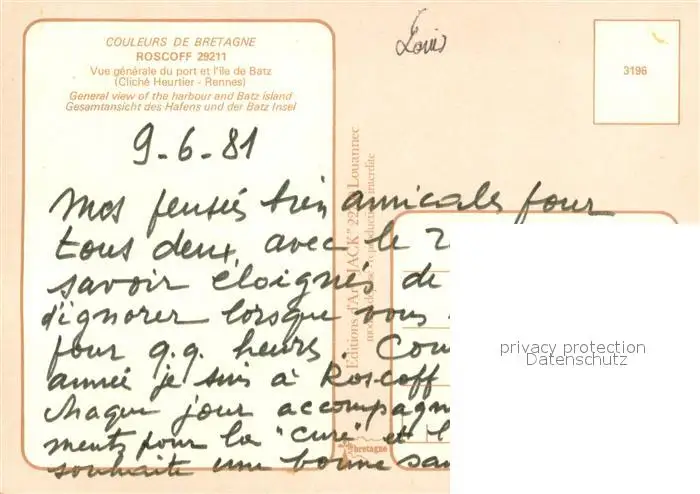 COULEURS DE BRETAGNE
ROSCOFF 29211
Vue générale du port et l'île de Batz
(Cliché Heurtier - Rennes)
General view of the harbour and Batz island
Gesamtansicht des Hafens und der Batz Insel
Louis
3196
9-6-81
Mes pensées bien amicales pour
tous deux, avec le
savoir éloignés de
d'ignorer lorsque vous
pour q.q. heures. Com
année je suis à Roscoff
chaque jour accompagn
ments pour la "cure" et
souhaite une bonne san
Editions d'Art "JACK" 22 Louannec
reproduction interdite
bretagne
privacy protection
Datenschutz